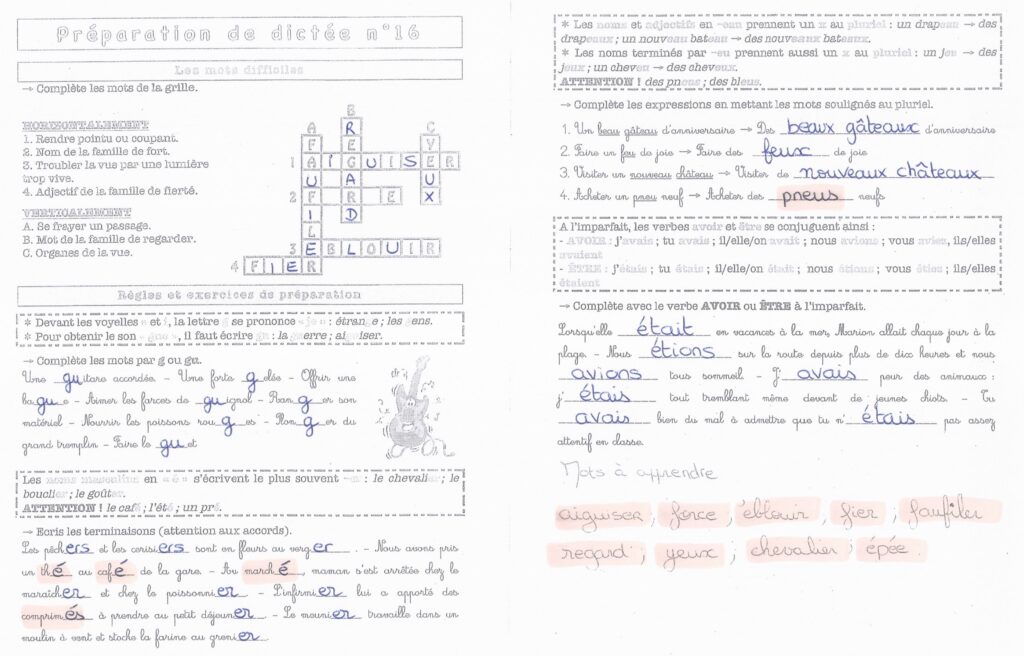 Préparation de dictée n°16
Les mots difficiles
→ Complète les mots de la grille.
HORIZONTALEMENT
1. Rendre pointu ou coupant.
2. Nom de la famille de fort.
3. Troubler la vue par une lumière
trop vive.
4. Adjectif de la famille de fierté.
VERTICALEMENT
A. Se frayer un passage.
B. Mot de la famille de regarder.
C. Organes de la vue.
B
A R C
F E Y
1 A I G U I S E R
U A U
2 F R E X
I D
L
3 E B L O U I R
4 F I E R
Règles et exercices de préparation
* Devant les voyelles e et i, la lettre g se prononce « je » : étrange ; les gens.
* Pour obtenir le son « gue », il faut écrire gu : la guerre ; aiguiser.
→ Complète les mots par g ou gu.
Une guitare accordée. – Une forte gelée – Offrir une
bague – Aimer les farces de guignol – Ranger son
matériel – Nourrir les poissons rouges – Plonger du
grand tremplin – Faire le guet
Les noms masculins en « é » s'écrivent le plus souvent -er : le chevalier ; le
bouclier ; le goûter.
ATTENTION ! le café ; l'été ; un pré.
→ Ecris les terminaisons (attention aux accords).
Les pêchers et les cerisiers sont en fleurs au verger. – Nous avons pris
un thé au café de la gare. – Au marché, maman s'est arrêtée chez le
maraîcher et chez le poissonnier – L'infirmier lui a apporté des
comprimés à prendre au petit déjeuner – Le meunier travaille dans un
moulin à vent et stocke la farine au grenier.
* Les noms et adjectifs en -eau prennent un x au pluriel : un drapeau → des
drapeaux ; un nouveau bateau → des nouveaux bateaux.
* Les noms terminés par -eu prennent aussi un x au pluriel : un jeu → des
jeux ; un cheveu → des cheveux.
ATTENTION ! des pneus ; des bleus.
→ Complète les expressions en mettant les mots soulignés au pluriel.
1. Un beau gâteau d'anniversaire → Des beaux gâteaux d'anniversaire
2. Faire un feu de joie → Faire des feux de joie
3. Visiter un nouveau château → Visiter de nouveaux châteaux
4. Acheter un pneu neuf → Acheter des pneus neufs
A l'imparfait, les verbes avoir et être se conjuguent ainsi :
- AVOIR : j'avais ; tu avais ; il/elle/on avait ; nous avions ; vous aviez, ils/elles
avaient
- ÊTRE : j'étais ; tu étais ; il/elle/on était ; nous étions ; vous étiez ; ils/elles
étaient
→ Complète avec le verbe AVOIR ou ÊTRE à l'imparfait.
Lorsqu'elle était en vacances à la mer, Marion allait chaque jour à la
plage. – Nous étions sur la route depuis plus de dix heures et nous
avions tous sommeil – J'avais peur des animaux :
j'étais tout tremblant même devant de jeunes chiots. – Tu
avais bien du mal à admettre que tu n'étais pas assez
attentif en classe.
Mots à apprendre
aiguiser ; force ; éblouir ; fier ; faufiler
regard ; yeux ; chevalier ; épée.